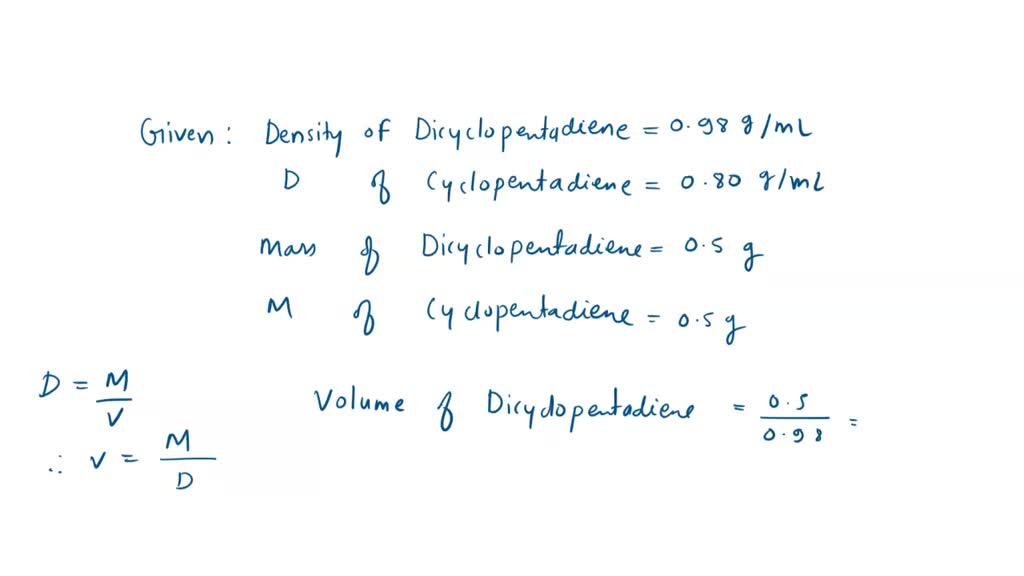 Given: Density of Dicyclopentadiene = 0.98 g/mL
D of Cyclopentadiene = 0.80 g/mL
Mass of Dicyclopentadiene = 0.5 g
M of Cyclopentadiene = 0.5 g
D = M/V
∴ V = M/D
Volume of Dicyclopentadiene = 0.5/0.98 =